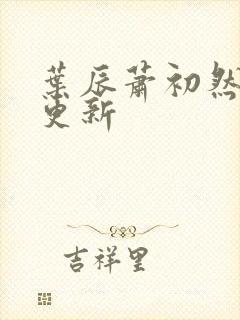 葉辰蕭初然
更新
吉祥里